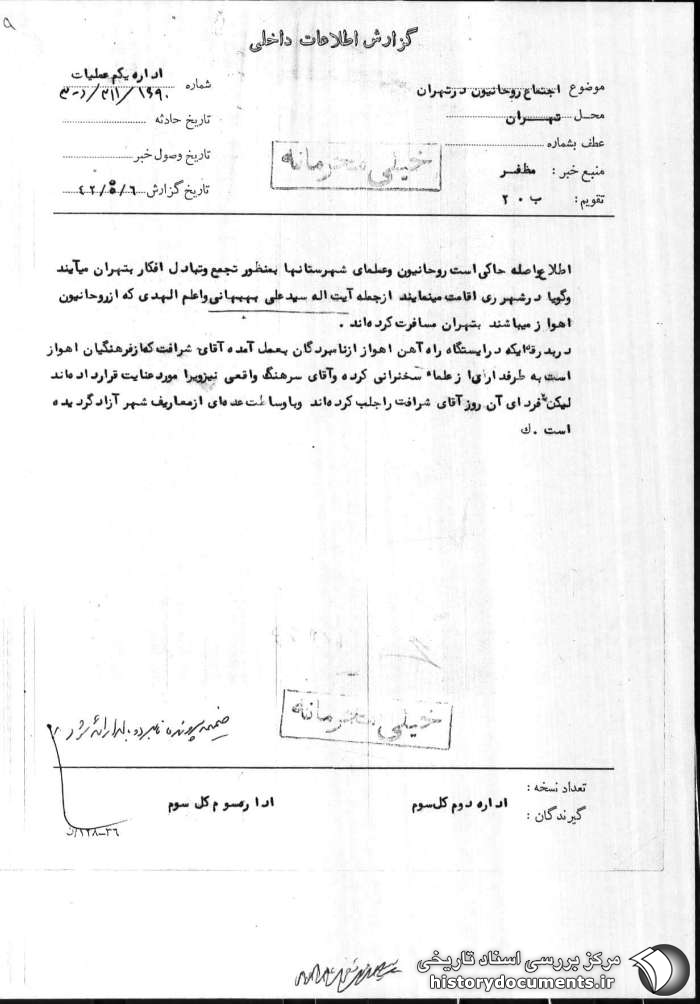 گزارش اطلاعات داخلی
موضوع اجتماع روحانیون در تهران
محل تهران
عطف بشماره
منبع خبر : مظفر
تقویم : ب ۲۰
اداره یکم عملیات
شماره
تاریخ حادثه
تاریخ وصول خبر
تاریخ گزارش ۴۲/۵/۶
خیلی محرمانه
اطلاع واصله حاکی است روحانیون و علمای شهرستانها بمنظور تجمع و تبادل افکار بتهران میآیند
و گویا در شهر ری اقامت مینمایند از جمله آیت اله سید علی بهبهانی و اعلم الهدی که از روحانیون
اهواز میباشند بتهران مسافرت کرده‌اند .
در بدرقه‌ایکه در ایستگاه راه آهن اهواز از نامبردگان بعمل آمده آقای شرافت که از فرهنگیان اهواز
است به طرفداری از علماء سخنرانی کرده و آقای سرهنگ واقعی نیز ویرا مورد عنایت قرار داده‌اند
لیکن فردای آن روز آقای شرافت را جلب کرده‌اند و با وساطت عده‌ای از معاریف شهر آزاد گردیده
است . ك
خیلی محرمانه
ضمیمه پرونده نامبرده
تعداد نسخه :
گیرندگان :
اداره دوم کل سوم
اداره سوم کل سوم
۳۶-۱۲۸/ل
مرکز بررسی اسناد تاریخی
historydocuments.ir